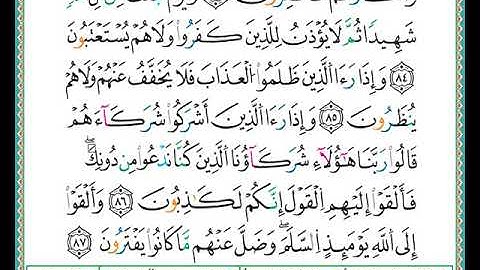 شَهِيدًا ثُمَّ لَا يُؤْذَنُ لِلَّذِينَ كَفَرُوا۟ وَلَا هُمْ يُسْتَعْتَبُونَ
٨٤ وَإِذَا رَءَا ٱلَّذِينَ ظَلَمُوا۟ ٱلْعَذَابَ فَلَا يُخَفَّفُ عَنْهُمْ وَلَا هُمْ
يُنظَرُونَ ٨٥ وَإِذَا رَءَا ٱلَّذِينَ أَشْرَكُوا۟ شُرَكَآءَهُمْ
قَالُوا۟ رَبَّنَا هَٰٓؤُلَآءِ شُرَكَآؤُنَا ٱلَّذِينَ كُنَّا نَدْعُوا۟ مِن دُونِكَ ۖ
فَأَلْقَوْا۟ إِلَيْهِمُ ٱلْقَوْلَ إِنَّكُمْ لَكَٰذِبُونَ ٨٦ وَأَلْقَوْا۟
إِلَى ٱللَّهِ يَوْمَئِذٍ ٱلسَّلَمَ ۖ وَضَلَّ عَنْهُم مَّا كَانُوا۟ يَفْتَرُونَ ٨٧